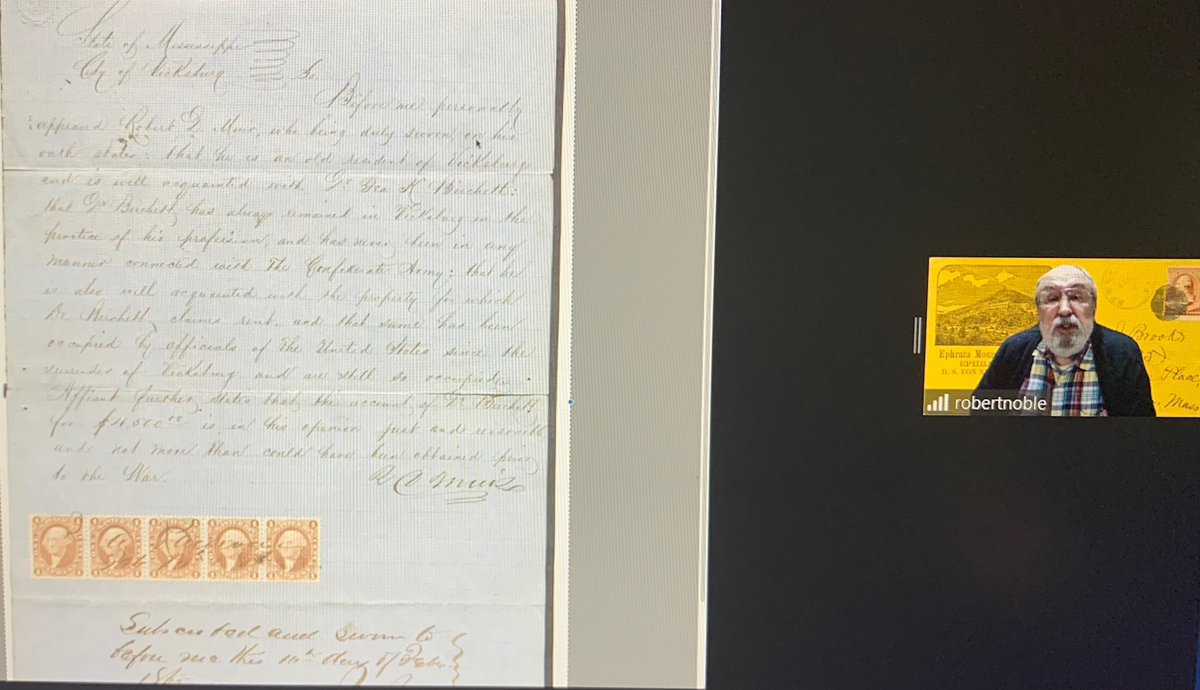 State of Mississippi
City of Vicksburg Ss
Before me personally
appeared Robert D. who being duly sworn, on his
oath states: that he is an old resident of Vicksburg
and is well acquainted with Dr Geo K Birchett:
that Dr Birchett has always remained in Vicksburg in the
practice of his profession, and has never been in any
manner connected with The Confederate Army: that he
is also well acquainted with the property for which
Dr Birchett claims rent, and that same has been
occupied by officials of The United States since the
surrender of Vicksburg and are still so occupied
Affiant further states that the account of Dr Birchett
for is in his opinion just and reasonable
and not more than could have been obtained prior
to the War.
Subscribed and Sworn to
before me this 10th day of Feby
Ephrata Moun
D. S. VON
Brooks
Place
Mass
robertnoble